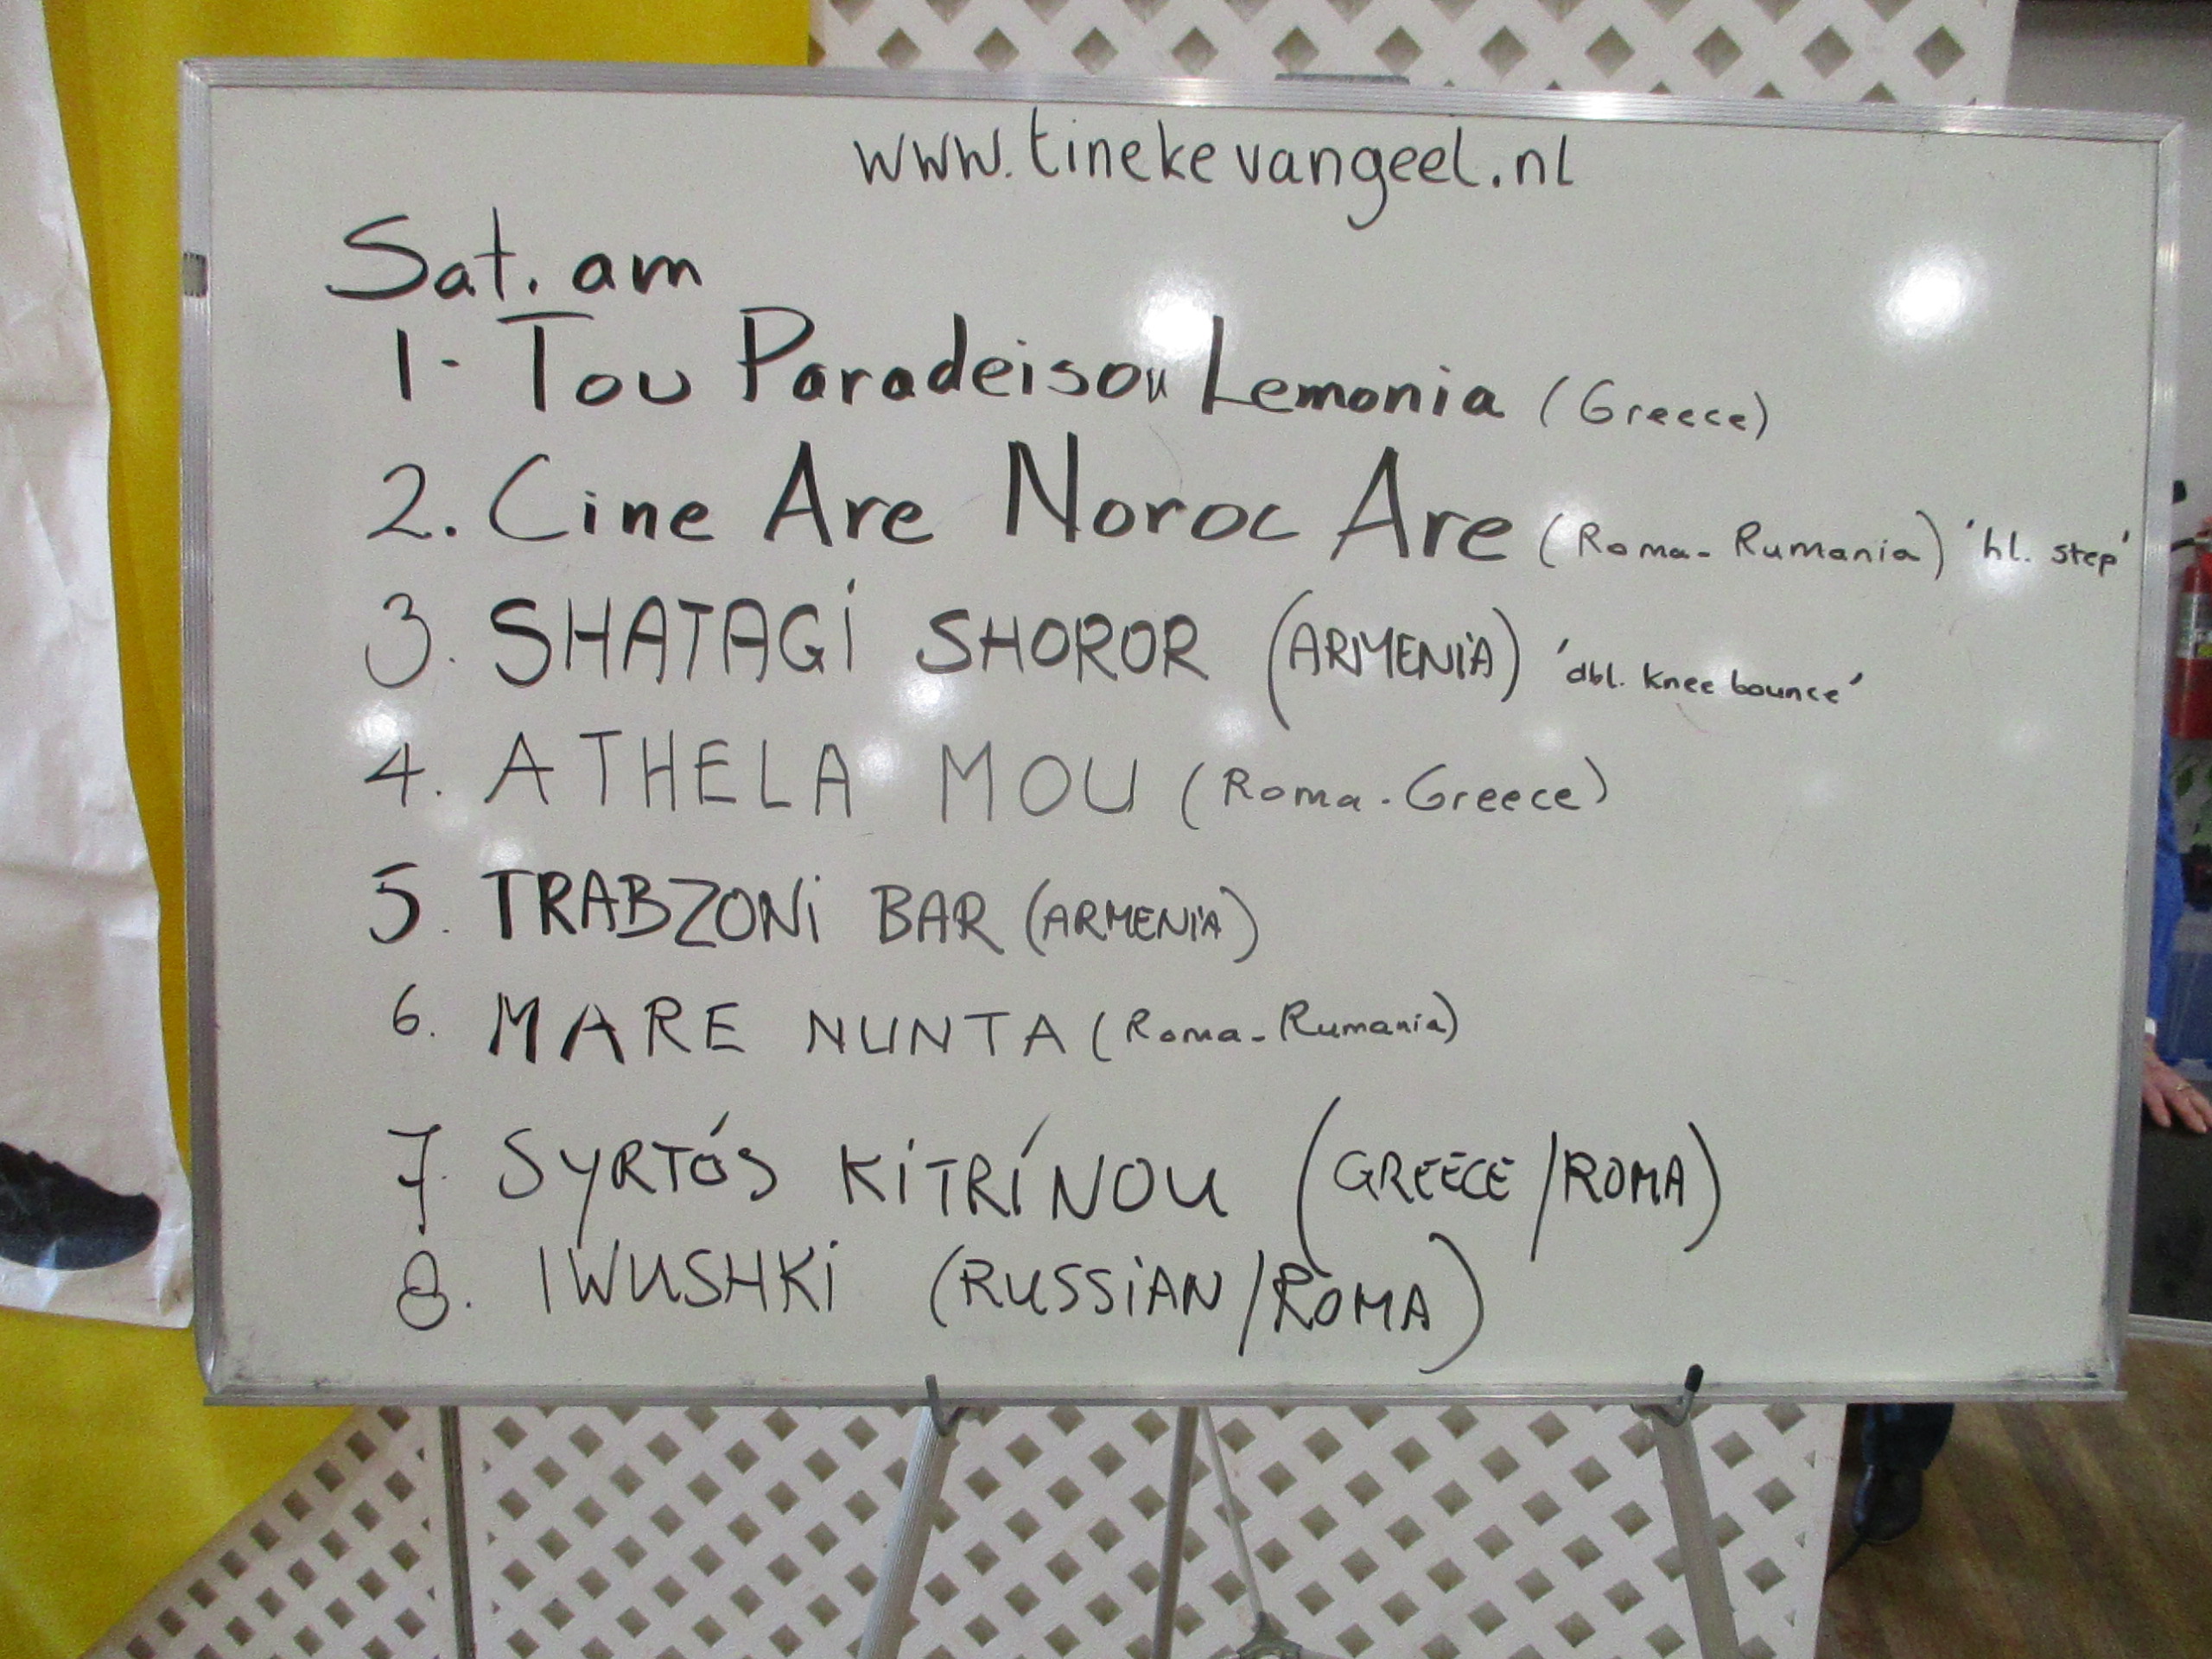 www.tinekevangeel.nl
Sat. am
1- Tou Paradeisou Lemonia (Greece)
2. Cine Are Noroc Are (Roma-Rumania) 'hl. step'
3. SHATAGI SHOROR (ARMENIA) 'dbl. knee bounce'
4. ATHELA MOU (Roma-Greece)
5. TRABZONI BAR (ARMENIA)
6. MARE NUNTA (Roma-Rumania)
7. SYRTÓS KITRÍNOU (GREECE/ROMA)
8. IWUSHKI (RUSSIAN/ROMA)